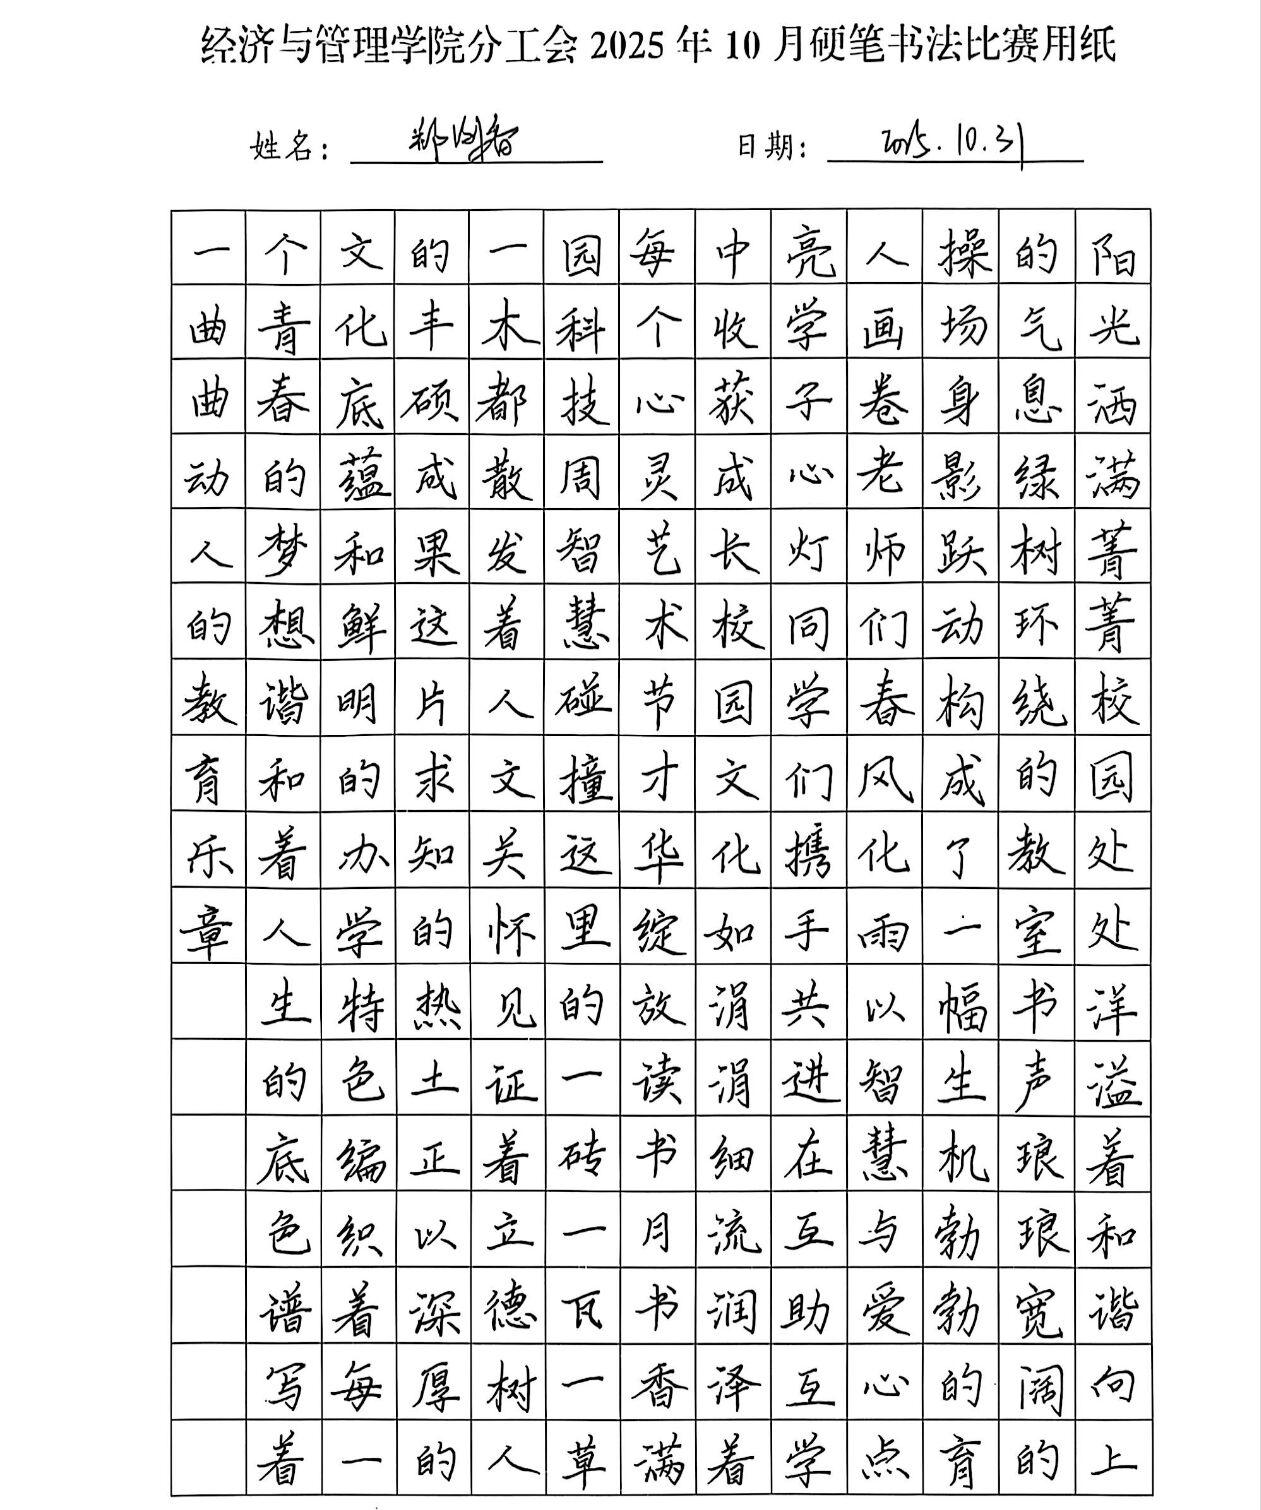 经济与管理学院分工会 2025 年 10 月硬笔书法比赛用纸
姓名：
日期： 2025.10.31
阳光洒满菁菁校园处处洋溢着和谐向上
的气息绿树环绕的教室书声琅琅宽阔的
操场身影跃动构成了一幅生机勃勃的育
人画卷老师们春风化雨以智慧与爱心点
亮学子心灯同学们携手共进在互助互学
中收获成长校园文化如涓涓细流润泽着
每个心灵艺术节才华绽放读书月书香满
园科技周智慧碰撞这里的一砖一瓦一草
一木都散发着人文关怀见证着立德树人
的丰硕成果这片求知的热土正以深厚的
文化底蕴和鲜明的办学特色编织着每一
个青春的梦想谐和着人生的底色谱写着
一曲曲动人的教育乐章